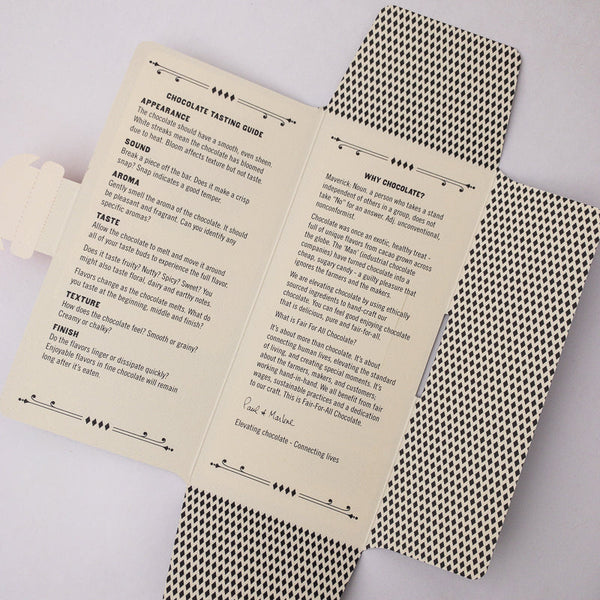 CHOCOLATE TASTING GUIDE
APPEARANCE
The chocolate should have a smooth, even sheen.
White streaks mean the chocolate has bloomed
due to heat. Bloom affects texture but not taste.
SOUND
Break a piece off the bar. Does it make a crisp
snap? Snap indicates a good temper.
AROMA
Gently smell the aroma of the chocolate. It should
be pleasant and fragrant. Can you identify any
specific aromas?
TASTE
Allow the chocolate to melt and move it around
all of your taste buds to experience the full flavor.
Does it taste fruity? Nutty? Spicy? Sweet? You
might also taste floral, dairy and earthy notes.
Flavors change as the chocolate melts. What do
you taste at the beginning, middle and finish?
TEXTURE
How does the chocolate feel? Smooth or grainy?
Creamy or chalky?
FINISH
Do the flavors linger or dissipate quickly?
Enjoyable flavors in fine chocolate will remain
long after it's eaten.
WHY CHOCOLATE?
Maverick: Noun, a person who takes a stand
independent of others in a group, does not
take "No" for an answer. Adj: unconventional,
nonconformist.
Chocolate was once an exotic, healthy treat -
full of unique flavors from cacao grown across
the globe. The 'Man' (industrial chocolate
companies) have turned chocolate into a
cheap, sugary candy - a guilty pleasure that
ignores the farmers and the makers.
We are elevating chocolate by using ethically
sourced ingredients to hand-craft our
chocolate. You can feel good enjoying chocolate
that is delicious, pure and fair-for-all.
What is Fair For All Chocolate?
It's about more than chocolate. It's about
connecting human lives, elevating the standard
of living, and creating special moments. It's
about the farmers, makers, and customers,
working hand-in-hand. We all benefit from fair
wages, sustainable practices and a dedication
to our craft. This is Fair-For-All Chocolate.
Paul & Marlene
Elevating chocolate - Connecting lives